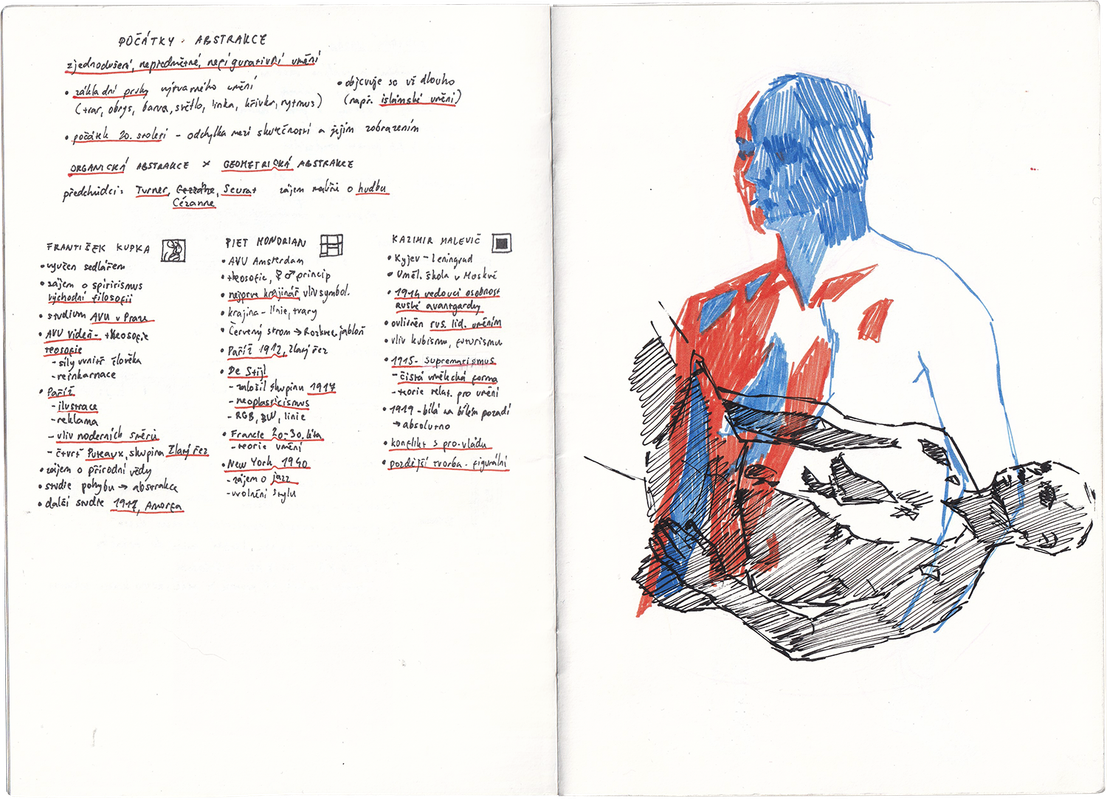 POČÁTKY ABSTRAKCE
zjednodušení, nepředmětné, nefigurativní umění
• základní prvky výtvarného umění
(tvar, obrys, barva, světlo, linka, křivka, rytmus)
• objevuje se už dlouho
(např. islámské umění)
• počátek 20. století - odchylka mezi skutečností a jejím zobrazením
ORGANICKÁ ABSTRAKCE × GEOMETRICKÁ ABSTRAKCE
předchůdci: Turner, Seurat zájem o hudbu
Cézanne
FRANTIŠEK KUPKA
• vyučen sedlářem
• zájem o spiritismus
východní filosofii
• studium AVU v Praze
• AVU Vídeň - theosofie
teosofie
- síly uvnitř člověka
- reinkarnace
• Paříž
- ilustrace
- reklama
- vliv moderních směrů
- čtvrť Puteaux, skupina Zlatý řez
• zájem o přírodní vědy
• studie pohybu → abstrakce
• další studie 1912, Amorfa
PIET MONDRIAN
• AVU Amsterdam
• theosofie, ♀ ♂ princip
• nejprve krajinář vliv symbol.
• krajina - linie, tvary
• Červený strom → Rozkve. jabloň
• Paříž 1912, Zlatý řez
• De Stijl
- založil skupinu 1917
- neoplasticismus
- RGB, BW, linie
• Francie 20-30. léta
- teorie umění
• New York 1940
- zájem o jazz
- uvolnění stylu
KAZIMIR MALEVIČ
• Kyjev - Leningrad
• Uměl. škola v Moskvě
• 1914 vedoucí osobnost
Ruské avantgardy
• ovlivněn rus. lid. uměním
• vliv kubismu, futurismu
• 1915 - suprematismus
- čistá umělecká forma
- teorie relat. pro umění
• 1919 - bílá na bílém pozadí
→ absolutno
• konflikt s pro. vládou
• pozdější tvorba - figurální